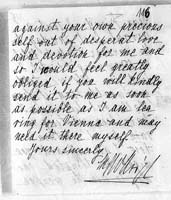 116
against your own precious
self out of desperate love
and devotion for me and
so I would feel greatly
obliged if you will kindly
send it to me as soon
as possible as I am lea
ving for Vienna and may
need it there myself
Yours sincerely